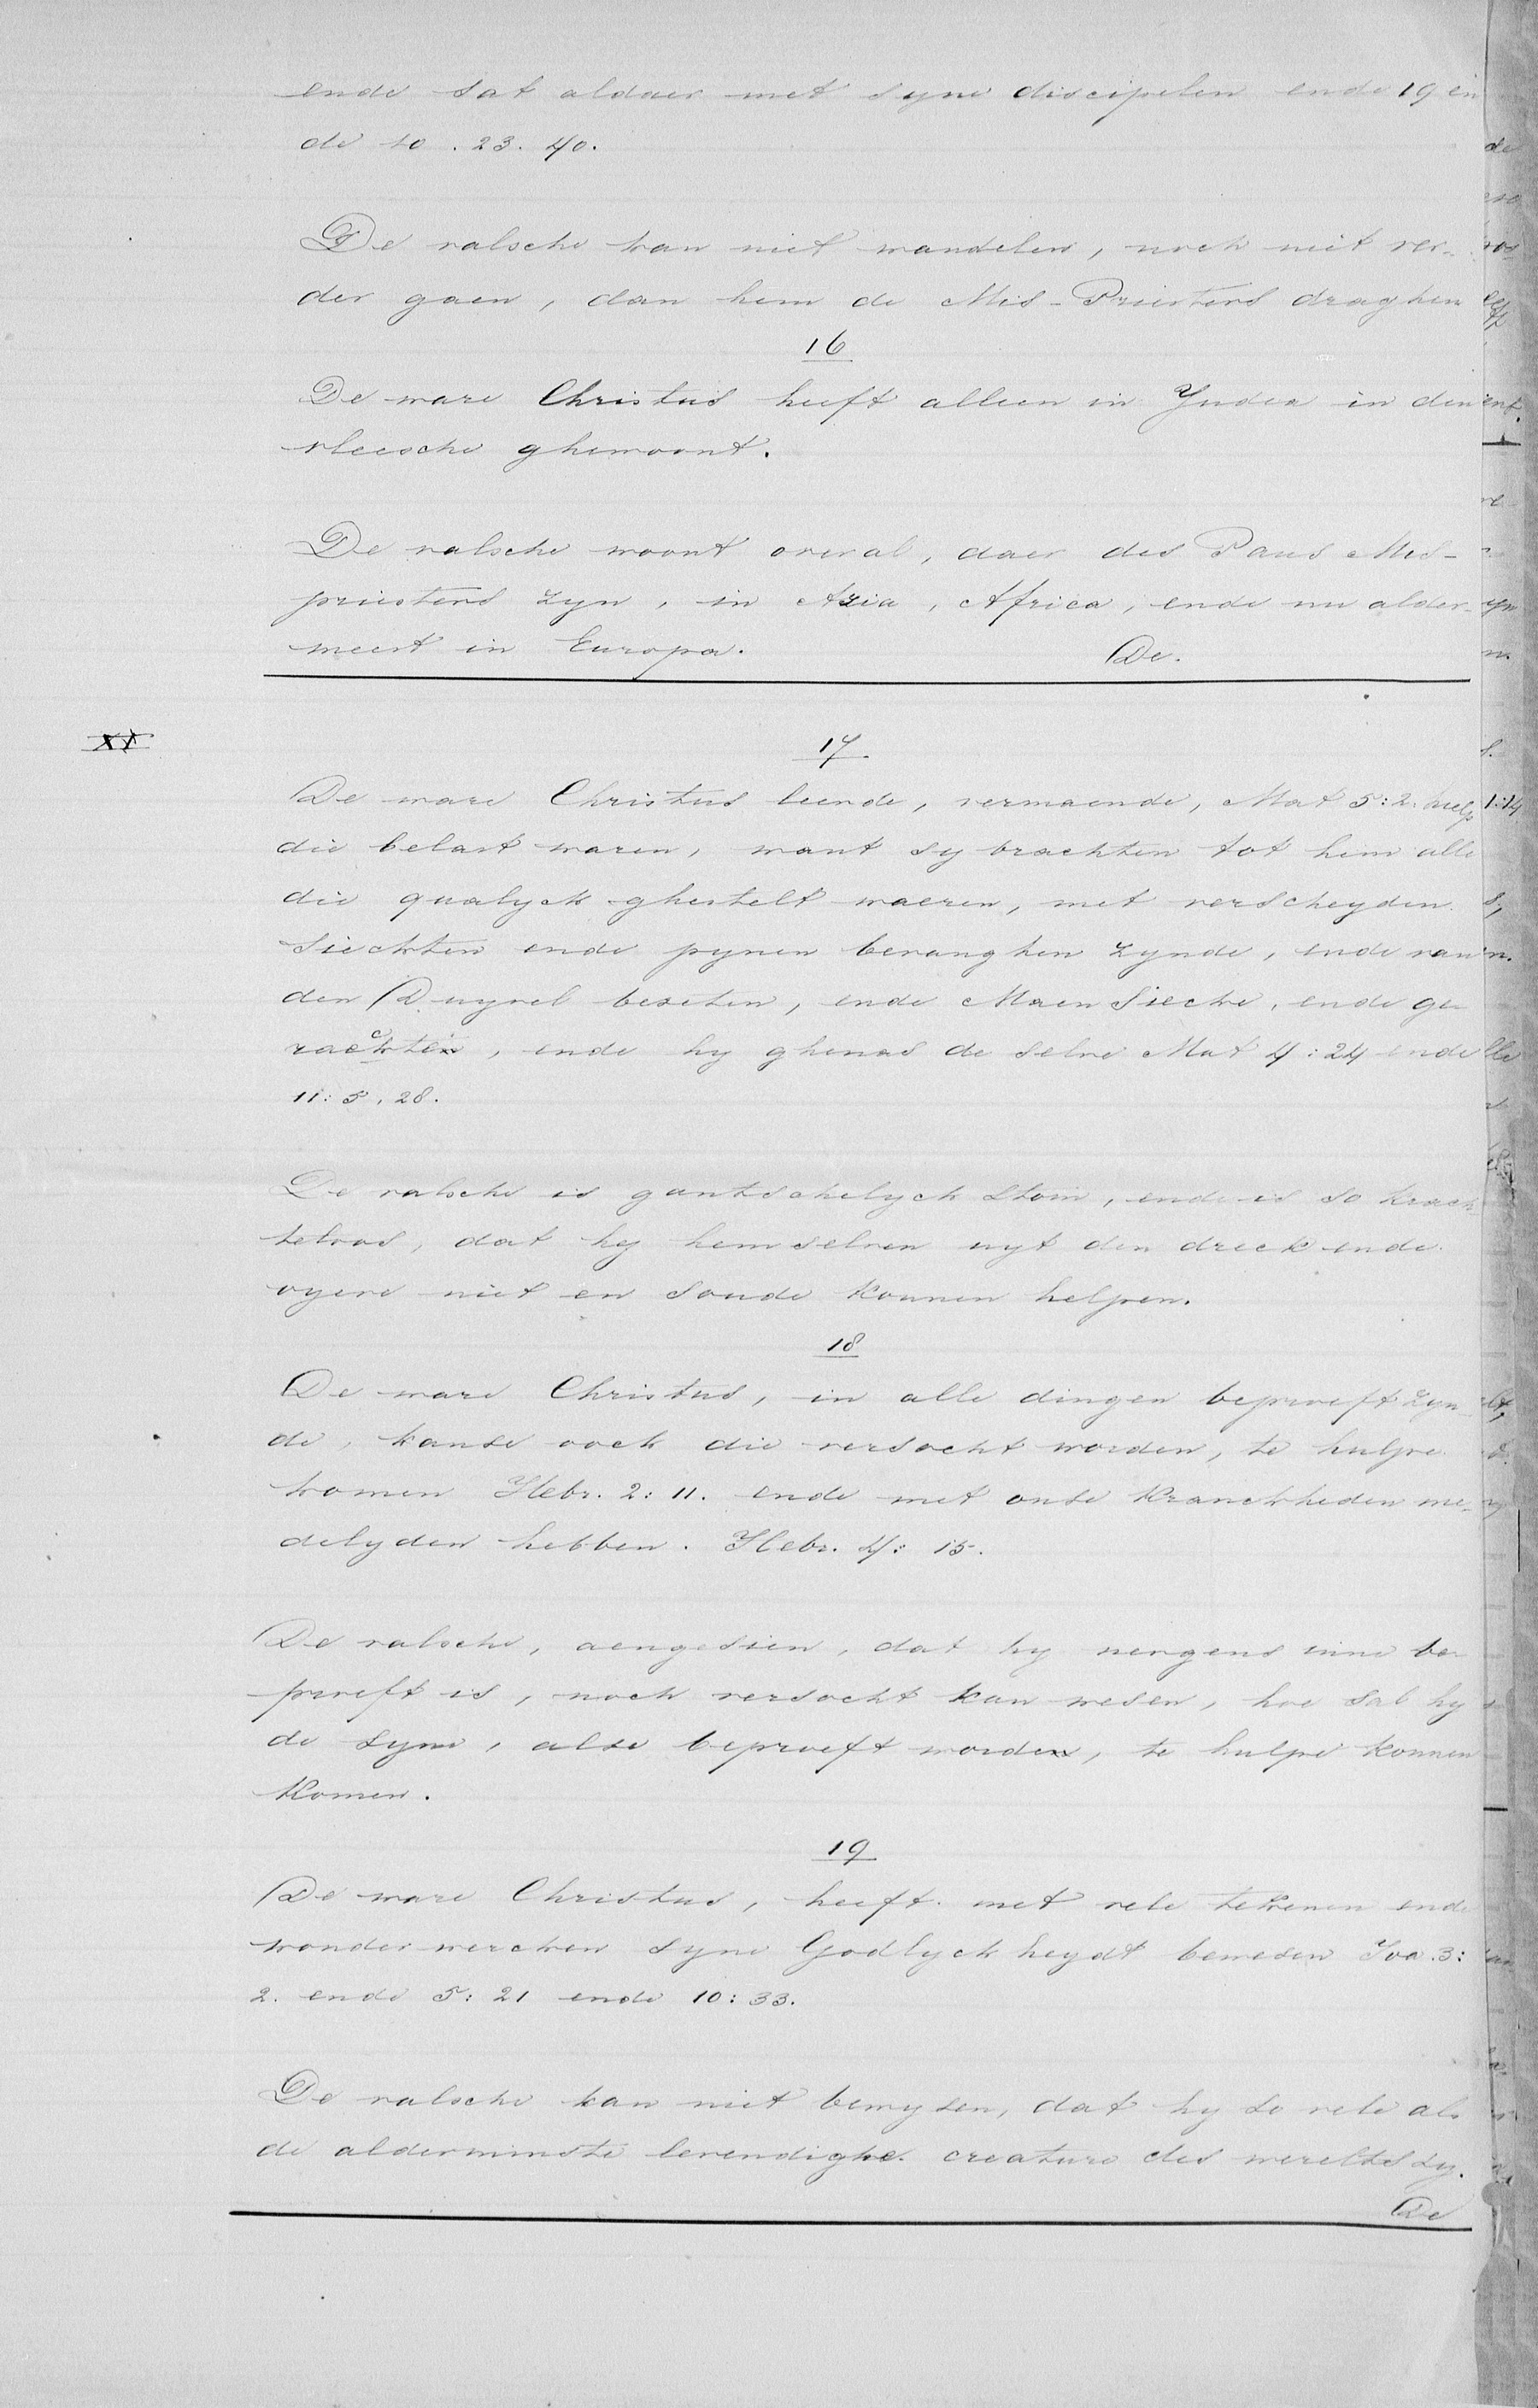 ende sat aldaer met syne discipelen ende 19 en
de 10 . 23. 40.
De valsche kan niet wandelen, noch niet ver-
der gaen, dan hem de Mis-Priesters draghen
16
De ware Christus heeft alleen in Yudea in den
vleesche ghewoont.
De valsche woont overal, daer des Paus Mis-
priesters zyn, in Azia, Africa, ende nu alder-
meest in Europa.
De.
XX
17.
De ware Christus leende, vermaende, Mat 5:2. hielp
die belast waren, want sy brachten tot hem alle
die qualyck ghestelt waeren, met verscheyden
Sieckten ende pynen bevanghen zynde, ende van
den Duyvel beseten, ende Maen Siecke, ende ge
, ende hy ghenas de selve Mat 4:24 ende
11: 5, 28.
De valsche is gantschelyck Stom, ende is so krach
teloos, dat hy hem selven uyt den dreck ende
vyere niet en soude konnen helpen.
18
De ware Christus, in alle dingen beproeft zyn-
de, kanse oock die versocht worden, te hulpe
komen Hebr. 2: 11. ende met onse Kranckheden me-
delyden hebben. Hebr. 4: 15.
De valsche, aengesien, dat hy nergens inne be-
proeft is, noch versocht kan wesen, hoe sal hy
de syne, alse beproeft worden, te hulpe konnen
Komen.
19
De ware Christus, heeft met vele tekenen ende
wonderwercken syne Godlyckheydt bewesen Joa. 3:
2. ende 5: 21 ende 10: 33.
De valsche kan niet bewysen, dat hy so vele als
de alderminste levendighe creature des werelts zy.
De